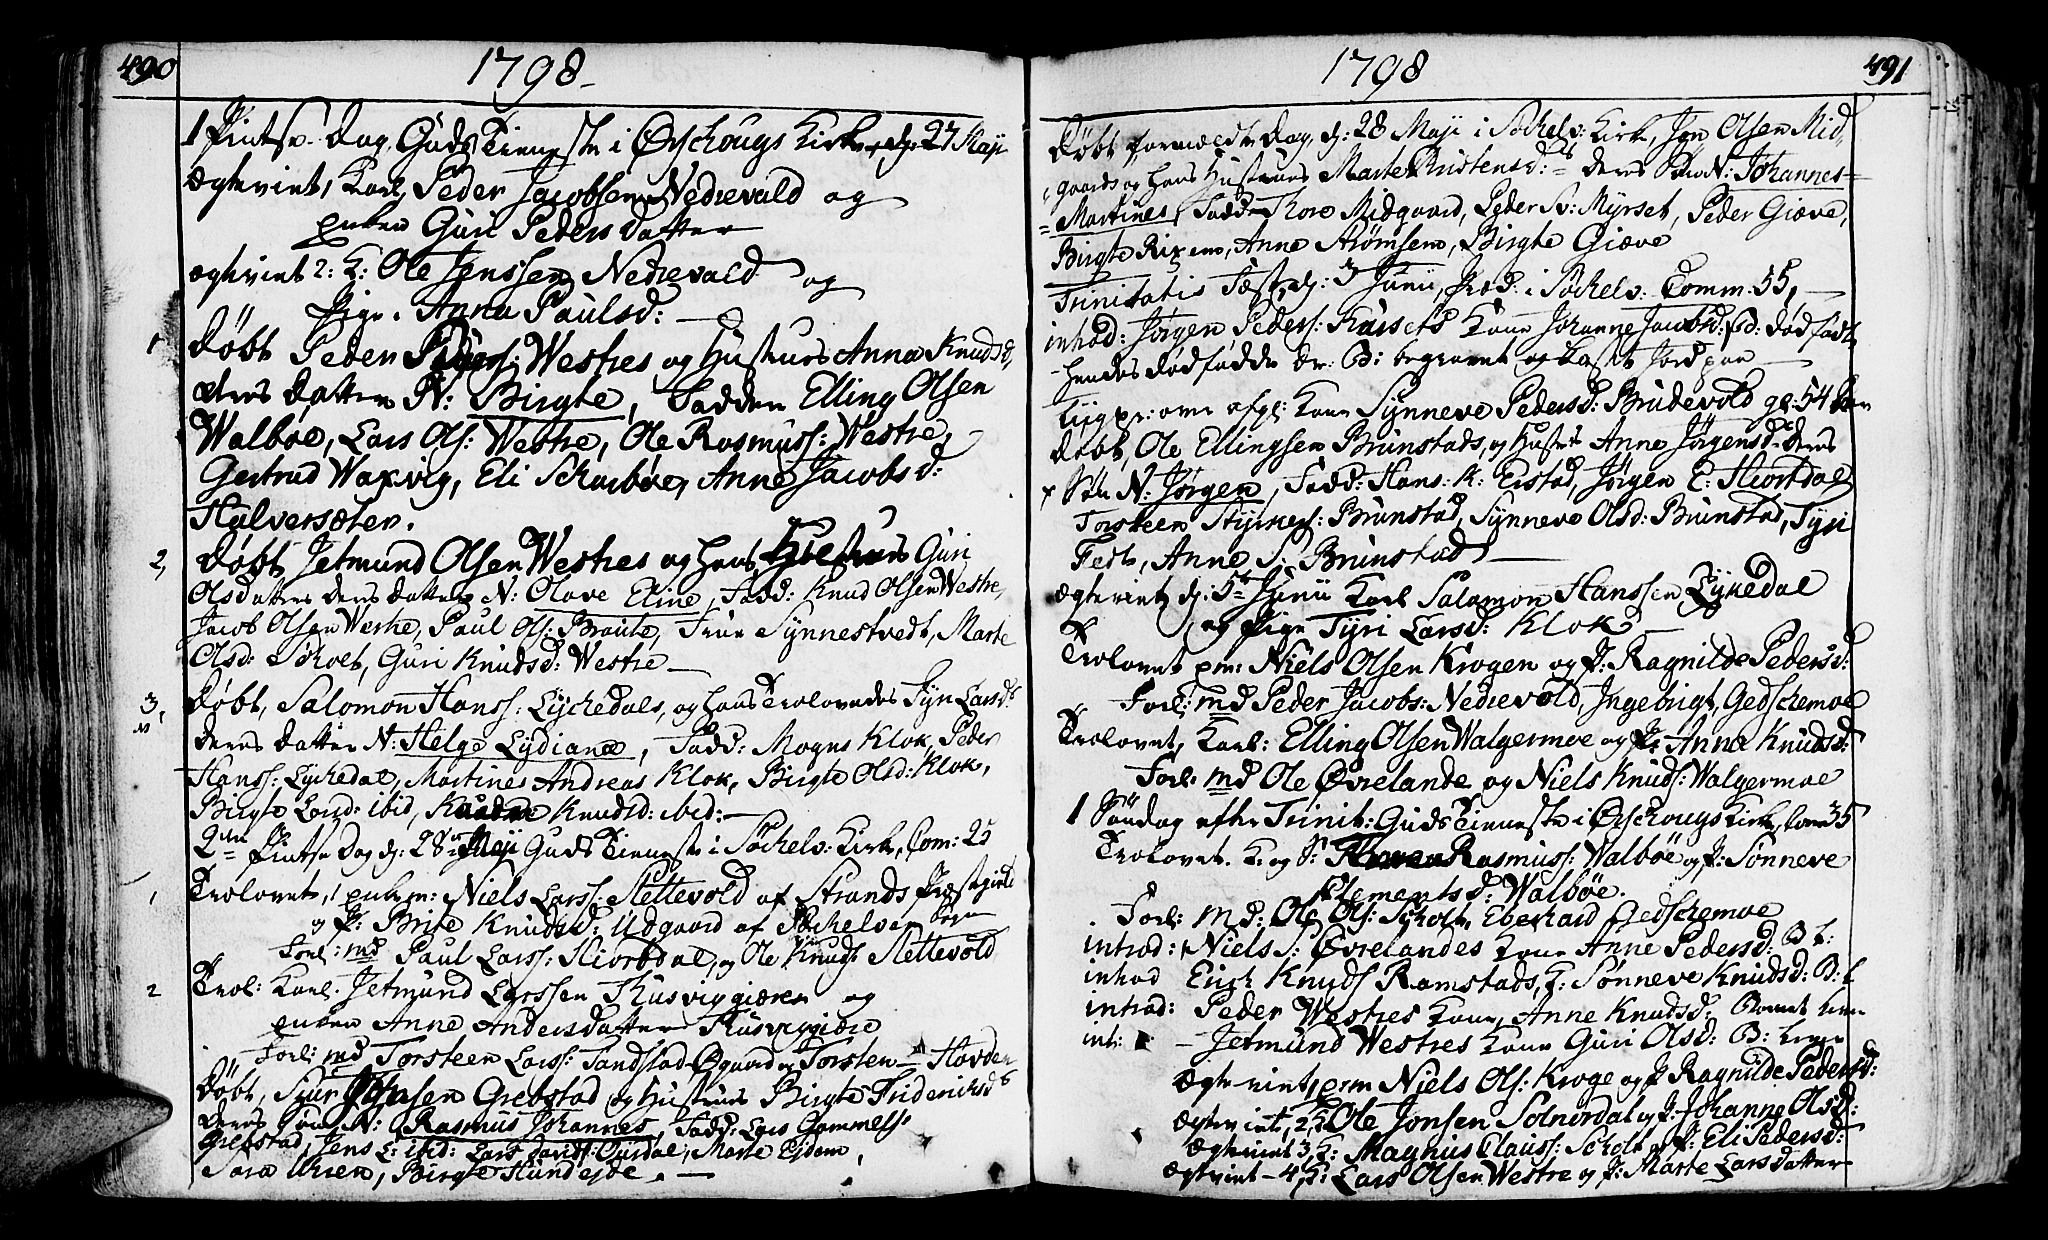 490
1798
1 Pintse Dag Guds Tieneste i Ørschougs Kirke, dj. 27 Maji
Ægteviet, Karl Peder Jacobsen Nedrevald og
enken Guri Peders datter
ægteviet 2: K: Ole Jenssen Nedrevald og
Pige. Anna Paulsd:
1 døbt Peder Peders: Westres og Hustrues Anna Knudsd,
deres datter N: Birgte, Fadder Elling Olsen
Walbøe, Lars Ols: Westre, Ole Rasmuss: Westre,
Gertrud Waxvig, Eli Scharbøe, Anne Jacobsd:
Halversæter.
2, døbt Jetmund Olsen Westres og hans Hustrues Guri
Olsdatters deres datter N: Olave Eline, Fadd: Knud Olsen Westre,
Jacob Olsen Westre, Paul Ols: Braute, Frue Synnestvedt, Marte
Olsd: Scholt, Guri Knudsd: Westre
3, døbt, Salomon Hanss: Lychedals, og hans Trolovedes Tyri Larsd:
deres datter N: Helge Lydianæ, Fadd: Mogns Klok, Peder
Hanss: Lychedal, Martines Andreas Klok, Birgte Olsd: Klok,
Birgte Larsd: ibid, Knudsd: ibid:
2den Pintse Dag dj: 28 Maji Guds Tieneste i Søchelv: Kirke, Com: 25
1, Trolovet, enkem: Niels Larss: Slettevold af Strands Præstegield
og P: Brite Knudsd: Udgaard af Søchelvs Sogn
Forl: md Paul Larss: Hiortdal, og Ole Knuds Slettevold
2 Trol: Karl. Jetmund Larssen Husviggiæren og
enken Anne Andersdatter Husviggiære
Forl: md Torsteen Larss: Sandstad Øgaard og Torsten Hovden
døbt, Siur Johnsen Grebstad og Hustrues Birgte Friderichsd
deres Søn N: Rasmus Johannes, Fadd: Lars Gammels:
Grebstad, Jens L: ibid: Lars Davids: Ourdal, Marte Eidem,
Sara Ursen, Birgte Hundeide.
1798
491
døbt formeldte Dag, dj: 28 Maji i Søchelv: Kirke, Jon Olsen Mid-
gaards og hans Hustrues Marte Christensd: deres Søn N: Johannes
Martines, Fadd: Thore Midgaard, Peder Sv: Myrset, Peder Giæve,
Birgte Rixem, Anne Strømsem, Birgte Giæve
Trinitatis Fæst, dj: 3 Junii, Præd: i Søchelv: Comm: 55,
introd: Jørgen Peders: Harsets Kone Johanne Jacobsd: dødfødt
hendes dødfødde Br: B: begravet og kastet Jord paa
Liigpr: over afg: Kone Synneve Pedersd: Brudevold gl: 54 Aar
døbt, Ole Ellingsen Brunstads, og Hustrues Anne Jørgensd: deres
Søn N: Jørgen, Fadd: Hans: K: Erstad, Jørgen E: Hiortdal
Torsteen Styrkers: Brunstad, Synneve Olsd: Brunstad, Tyri
Fedt, Anne S: Brunstad
Ægteviet dj. 5te Junii Karl Salomon Hanssen Lykedal
og Pige Tyri Larsd: Klok
Trolovet ym: Niels Olsen Krogen og P: Ragnilde Pedersd:
Forl: md Peder Jacobs: Nedrevold, Ingebrigt Gedschemoe
Trolovet, Karl: Elling Olsen Walgermoe og P: Anna Knudsd:
Forl: md Ole Øvrelande og Niels Knuds: Walgermoe
1 Søndag efter Trinit: Guds Tieneste i Ørschougs Kirke, Com: 35
Trolovet. K. og S: Rasmuss: Walbøe og P: Sønneve
Klementsd: Walbøe.
Forl: md: Ole Ols: Scholt, Eberhard Gedschemoe
introd: Niels S: Øvrelandes Kone Anne Pedersd: B l:
introd Erich Knuds Ramstads, K: Sønneve Knudsd: B: l
introd: Peder Westres Kone, Anne Knudsd: Barnet lever
int: Jetmund Westres Kone Guri Olsd: B: lever
Ægteviet, ym Niels Ols: Kroge og P Ragnilde Pedersd:
Ægteviet, 2, K Ole Jonsen Solnordal og P: Johanne Olsd:
Ægteviet 3, K: Magnus Clauss: Scholt og P: Eli Pedersd:
Ægteviet 4, K: Lars Olsen Westre og P: Marte Larsdatter